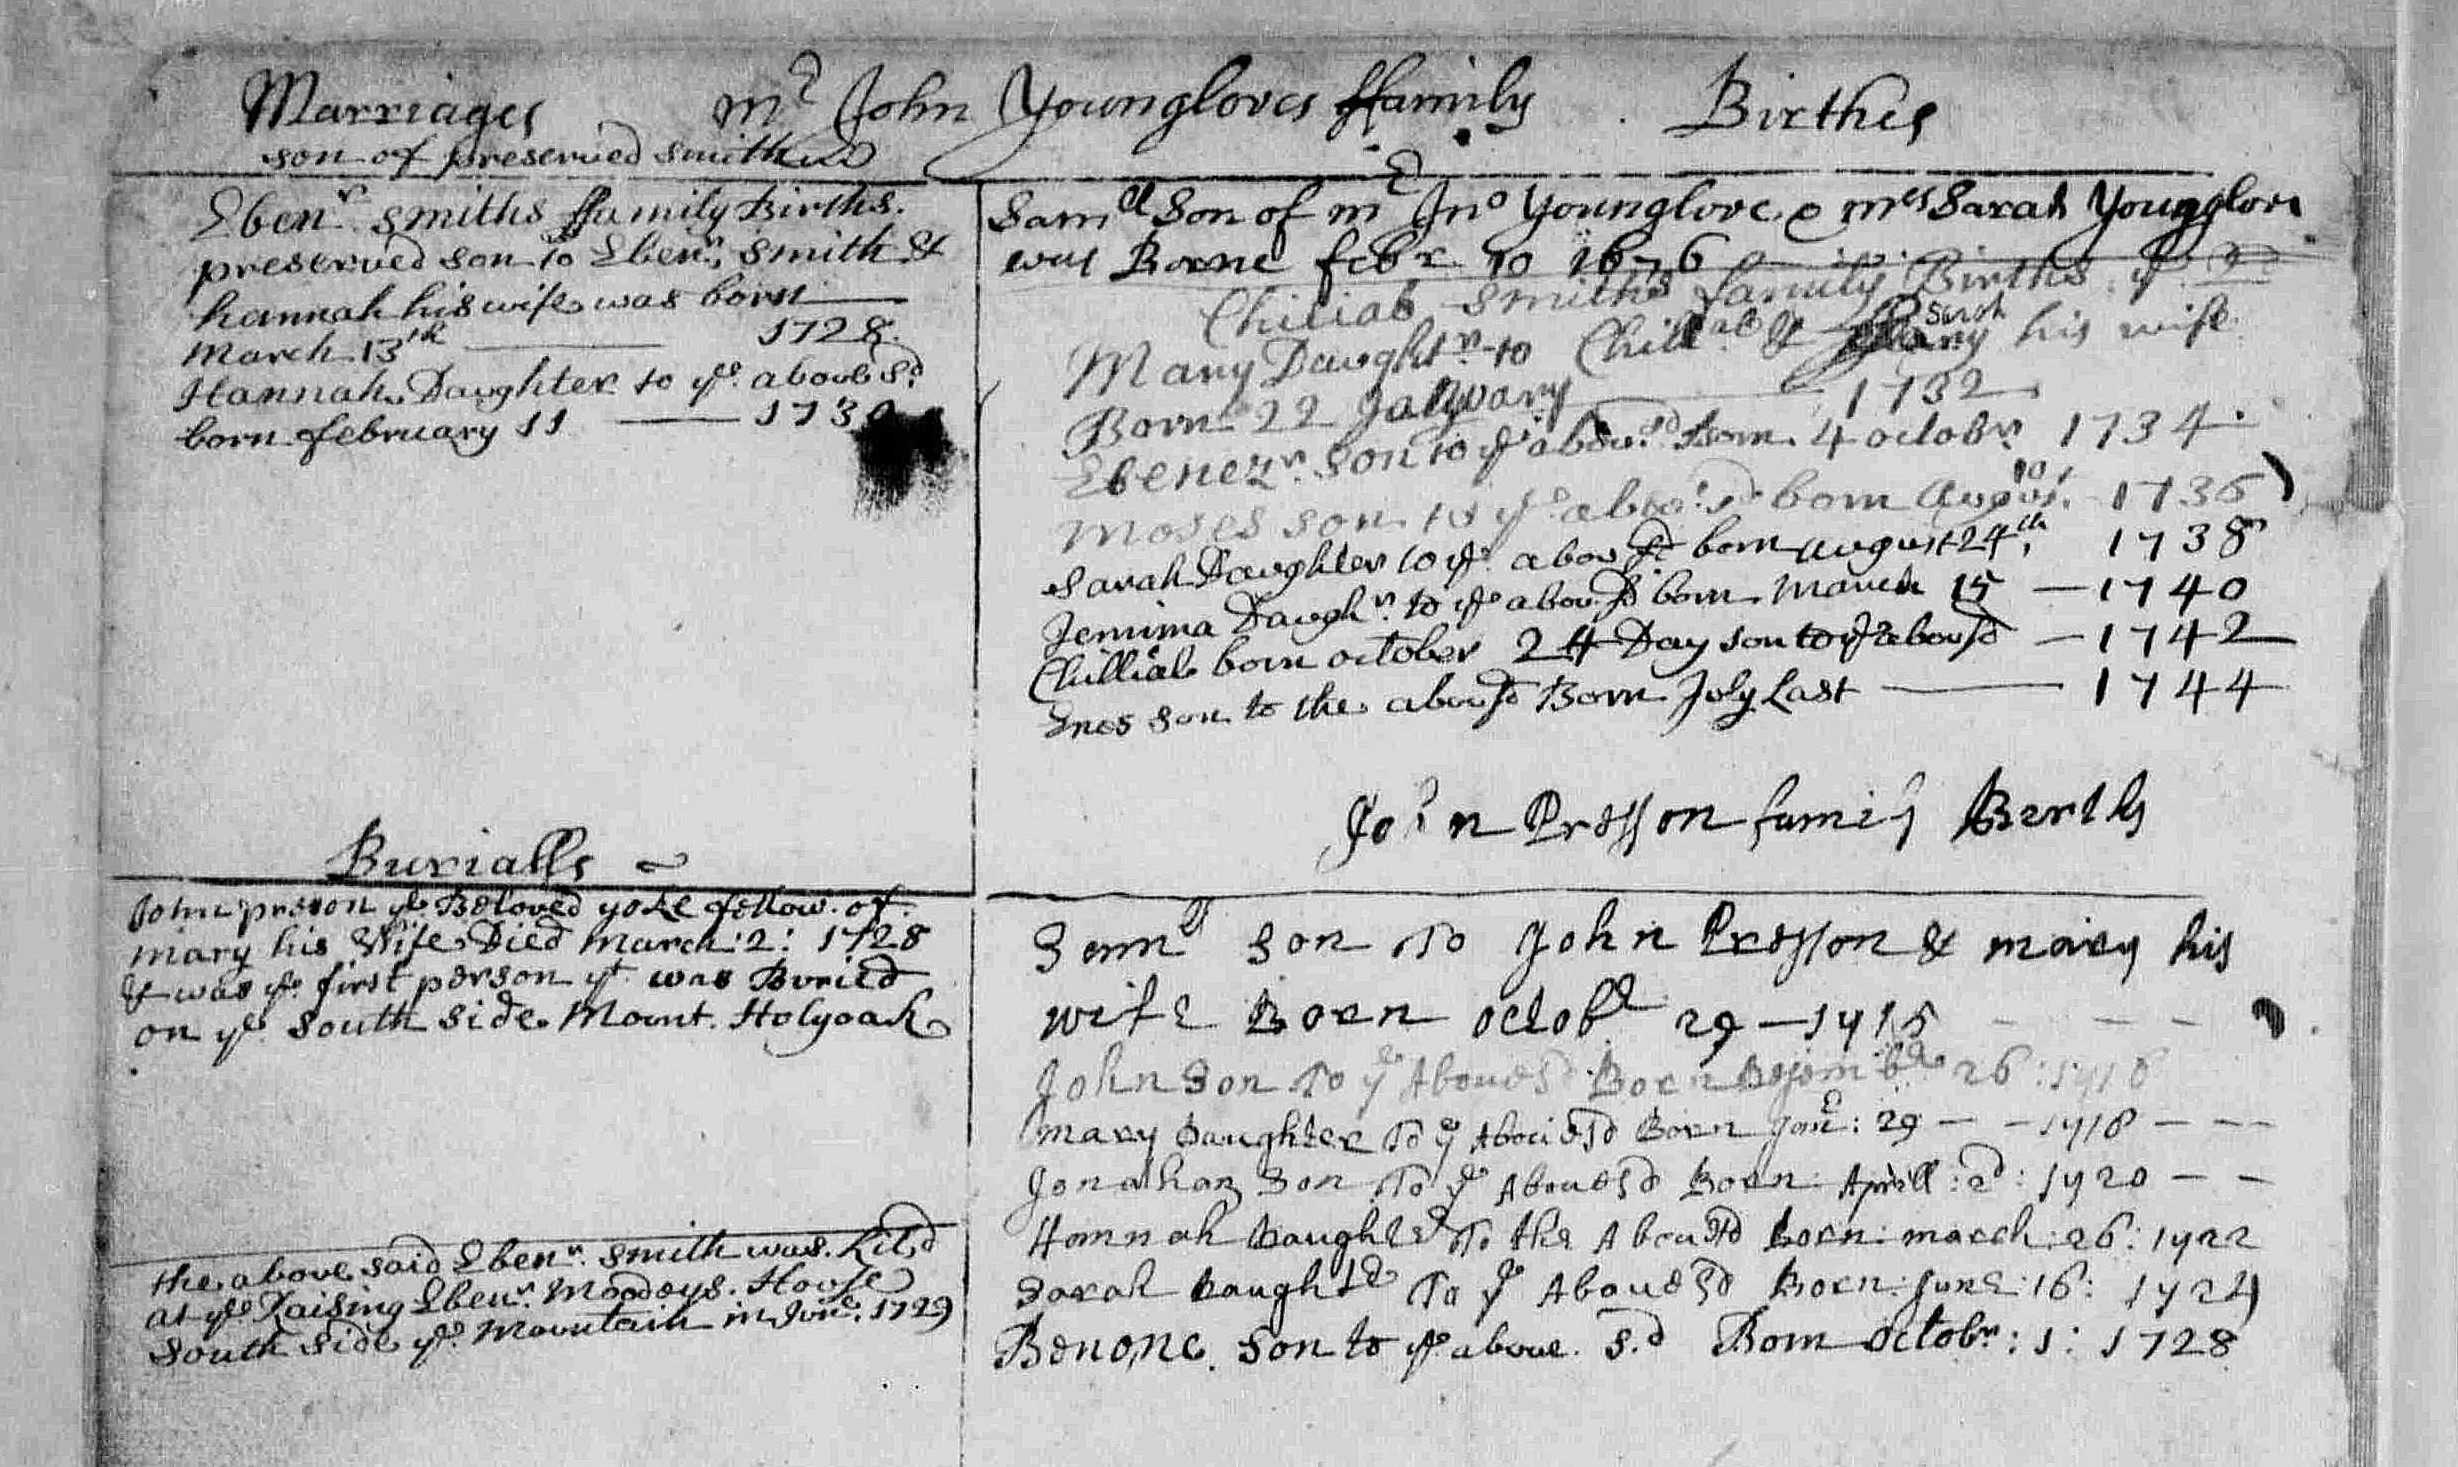 Marriages mr John Youngloves ffamily Birthes
son of preserued smith
Ebenr smiths ffamily Births.
preserued son to Ebenr. smith &
hannah his wife was born
March 13th 1728.
Hannah Daughter to ye. aboue sd
born february 11 1730
Samll Son of mr Jno Younglove & mrs Sarah Younglove
was Borne febr 10 1676
Chiliab smiths family Births ye
Mary Daughtr to Chillab & Sarah his wife
Born 22 January 1732
Ebenezr. Son to ye aboue sd Born. 4 octobr 1734.
Moses son to ye aboue sd born August. 1736
Sarah Daughter to ye. aboue sd born august 24th, 1738
Jemima Daughr. to ye aboue sd born March 15 — 1740
Chilliab born october 24 Day son to ye aboue sd — 1742
Enos son to the aboue sd Born July Last — 1744
John Presson famiy Berths
Burialls
John preson ye Beloved yoke fellow of
mary his Wife Died March: 2: 1728
& was ye first person yt was Buried
on ye south side Mount. Holyoak
Samll Son To John Presson & mary his
wife Born octobr 29 — 1715
John Son To ye Aboue sd Born 26: 1716
Mary Daughter To ye Aboue sd Born Janr: 29 — — 1718 — — —
Jonathan Son To ye Aboue sd Born: Aprill: 2d: 1720 — —
Hannah Daughter To the Aboue sd Born: march: 26: 1722
Sarah Daughter To ye Aboue sd Born: June: 16: 1724
Benone. son to ye aboue. s.d Born octobr: 1: 1728
the aboue said Ebenr. smith was. kild
at ye Raising Ebenr. Moodeys. House
south side ye Mountain in June. 1729